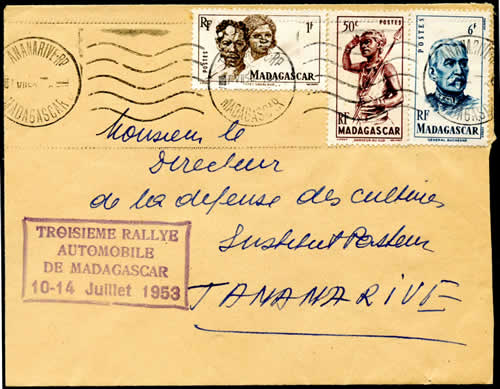 TANANARIVE-RP
MADAGASCAR
RF
1F
POSTES
MADAGASCAR
50c
POSTES
RF
MADAGASCAR
6F
POSTES
RF
MADAGASCAR
GÉNÉRAL DUCHESNE
Monsieur le
Directeur
de la defense des cultures
Institut Pasteur
TANANARIVE
TROISIEME RALLYE
AUTOMOBILE
DE MADAGASCAR
10-14 Juillet 1953